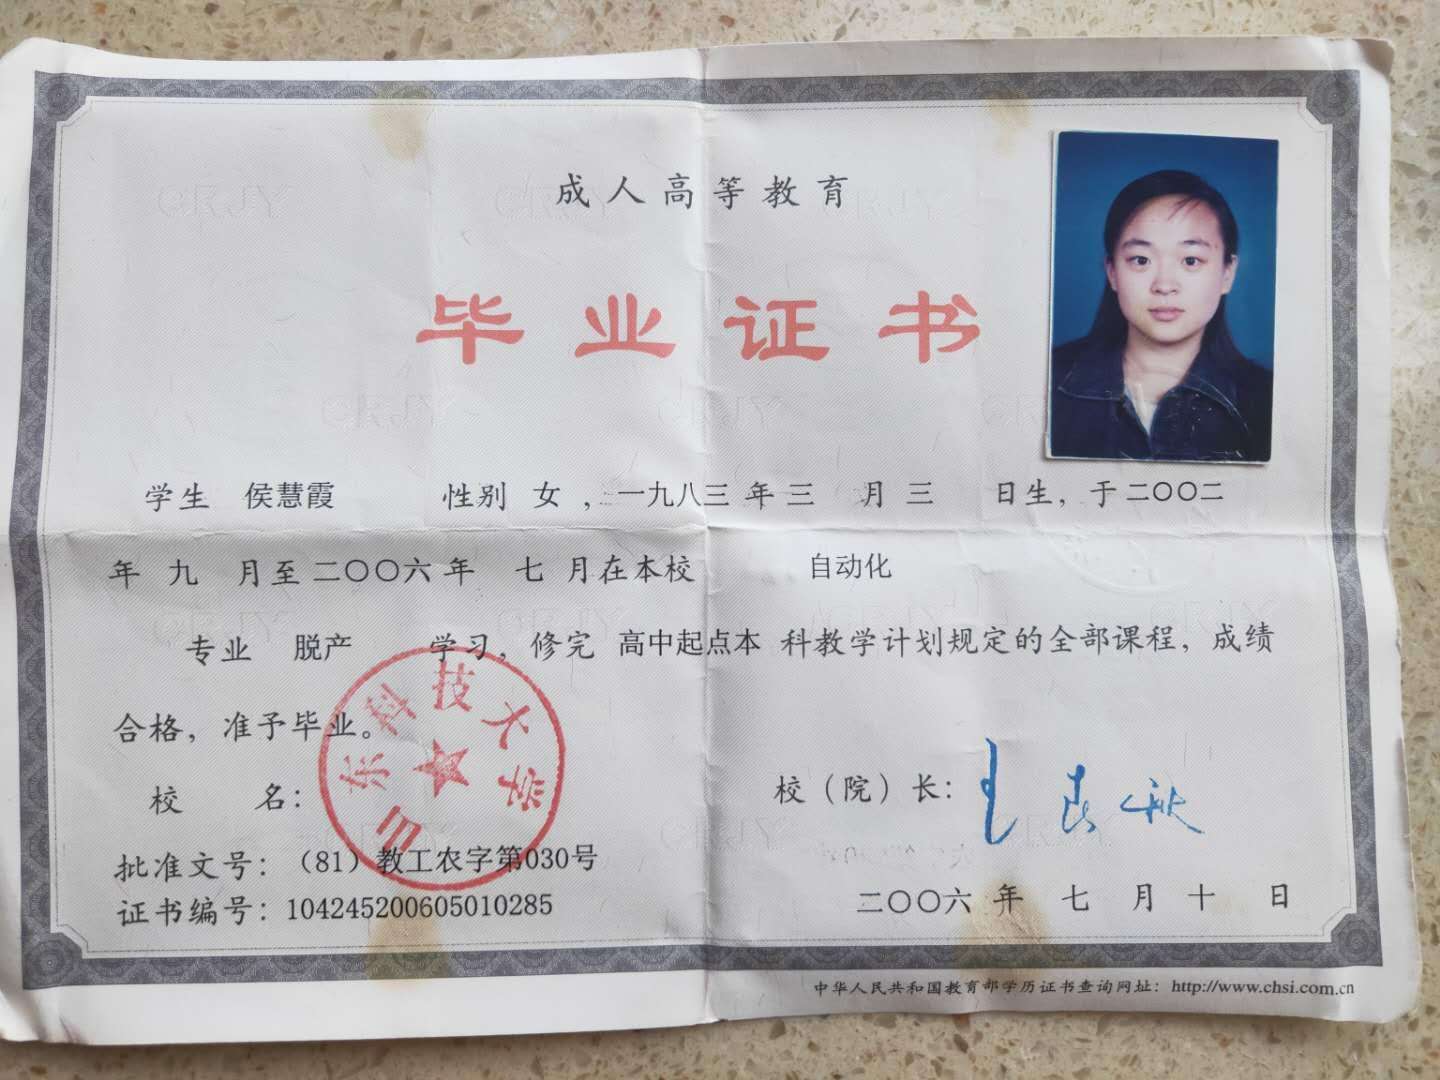 成人高等教育
毕业证书
学生 侯慧霞 性别 女 ，一九八三 年 三 月 三 日生，于 二〇〇二
年 九 月至 二〇〇六 年 七 月在本校 自动化
专业 脱产 学习，修完 高中起点本 科教学计划规定的全部课程，成绩
合格，准予毕业。
山东科技大学
校 名：
校（院）长：
批准文号：（81）教工农字第030号
证书编号：104245200605010285
二〇〇六 年 七 月 十 日
中华人民共和国教育部学历证书查询网址：http://www.chsi.com.cn
CRJY